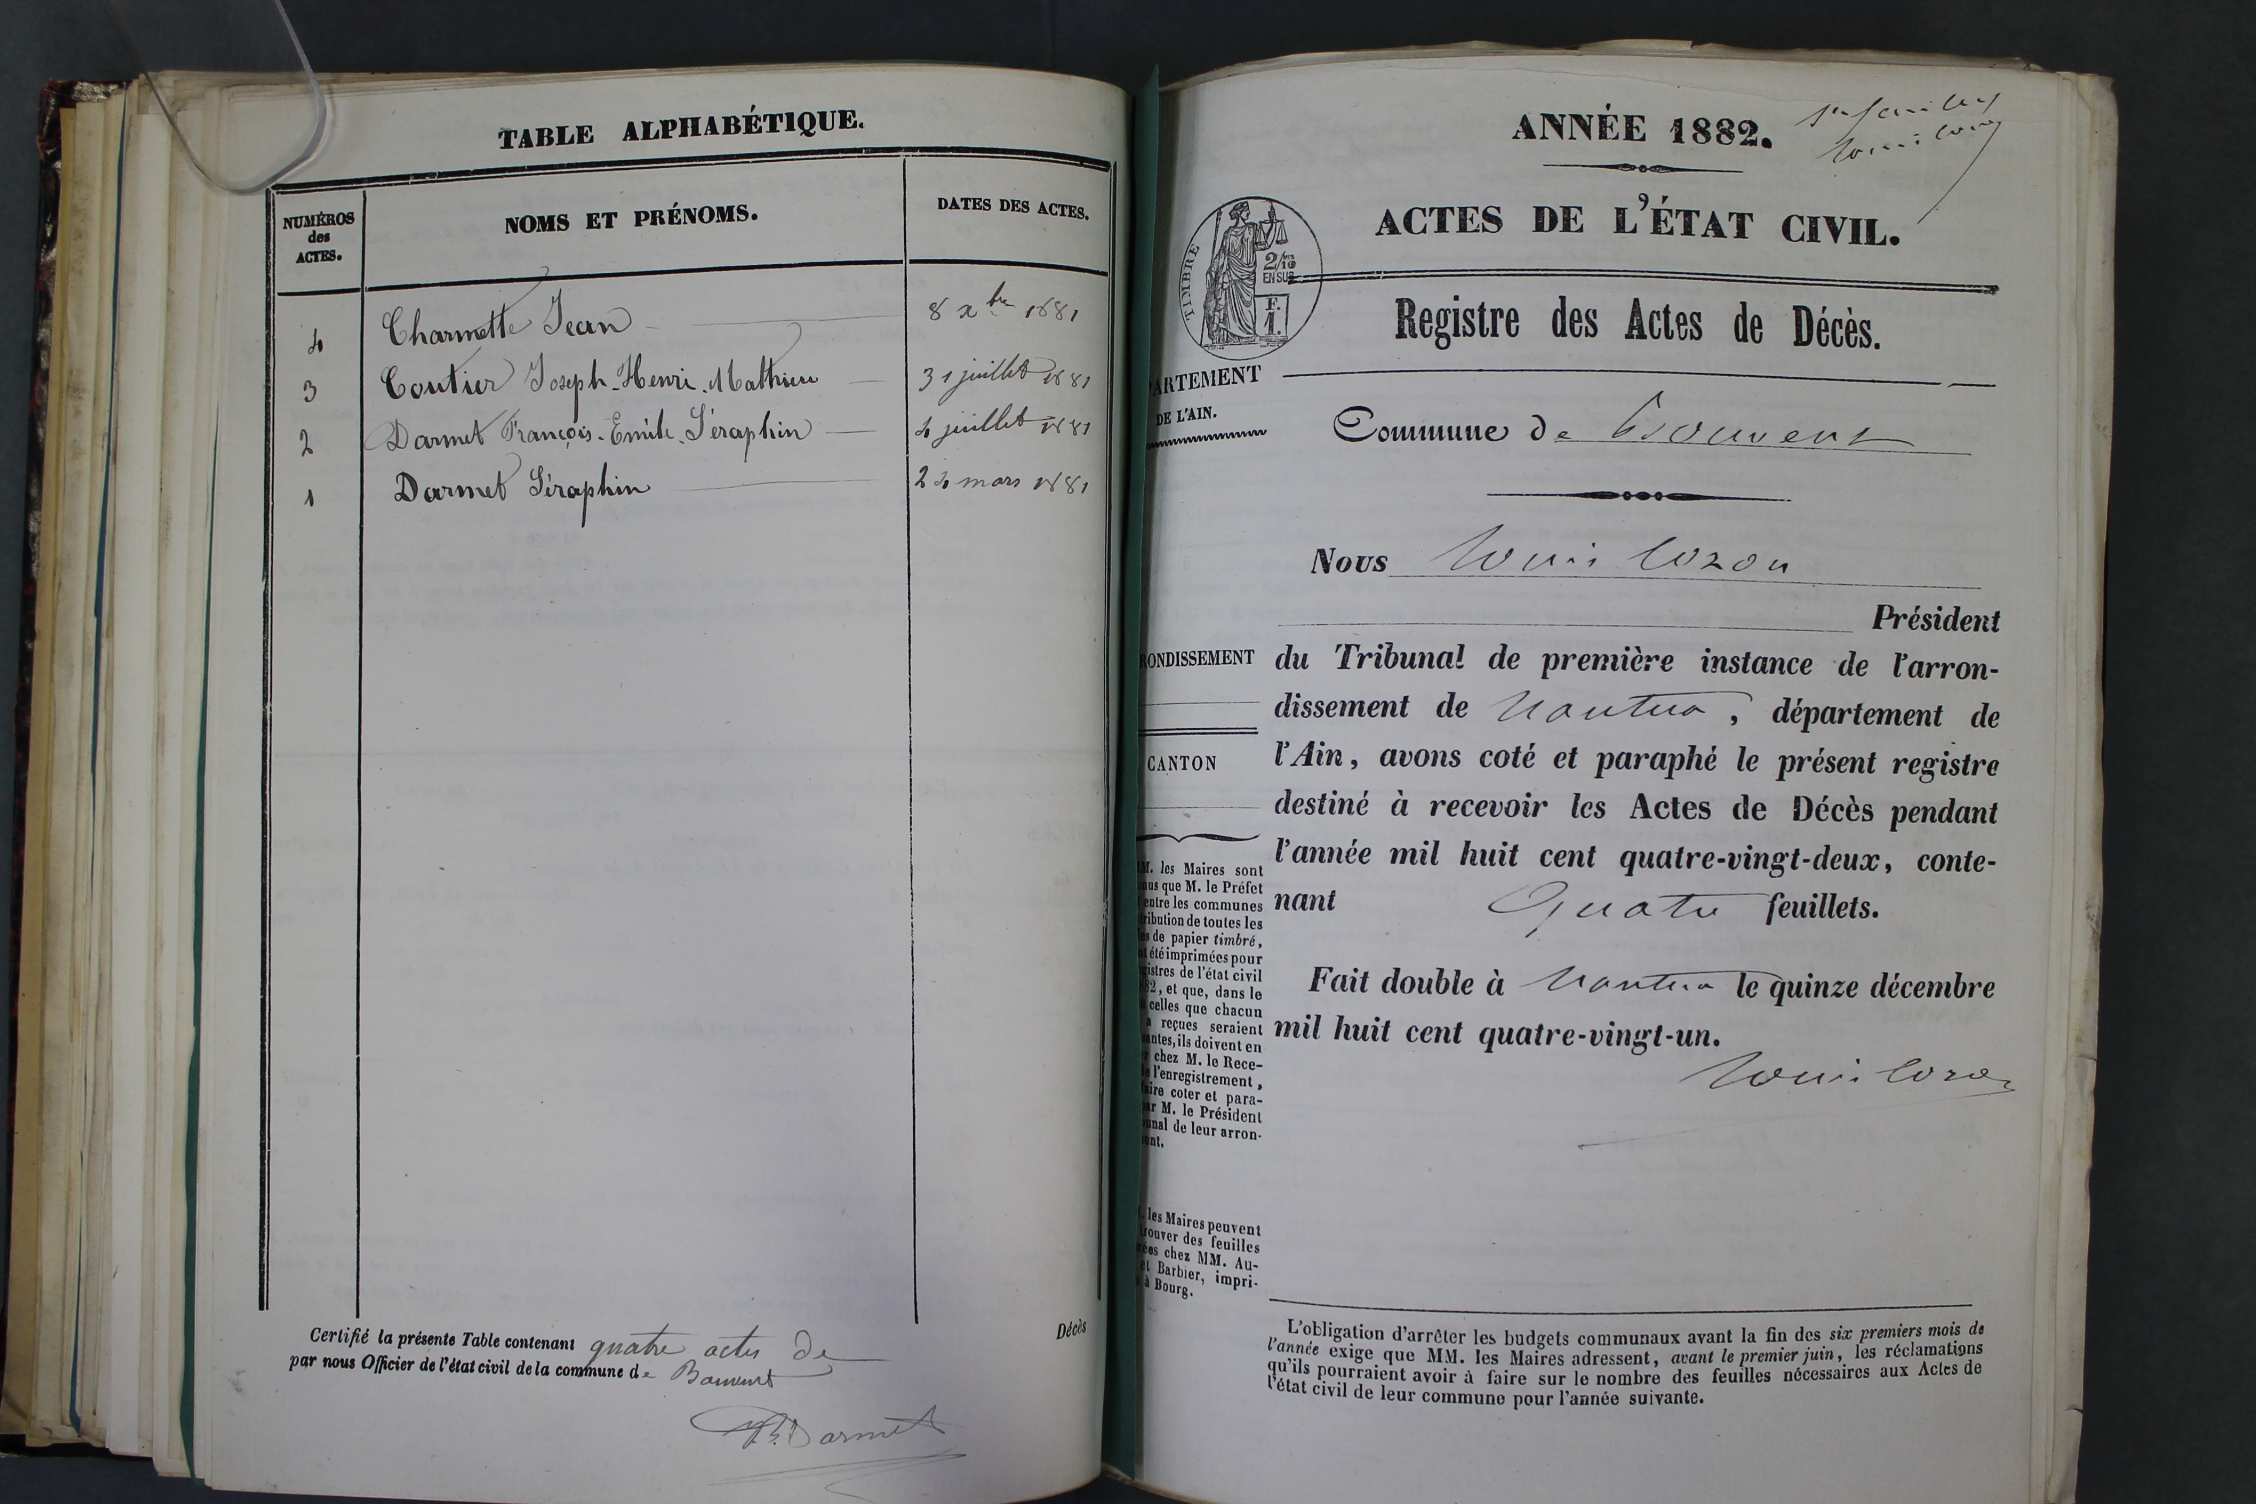 TABLE ALPHABÉTIQUE.
NUMÉROS
des
ACTES.
NOMS ET PRÉNOMS.
DATES DES ACTES.
4 Charmette Jean 8 xbre 1881
3 Coutier Joseph-Henri-Mathieu 31 juillet 1881
2 Darmet François-Emile-Séraphin 4 juillet 1881
1 Darmet Séraphin 24 mars 1881
Certifié la présente Table contenant quatre actes de Décès
par nous Officier de l'état civil de la commune de Bouvent
Darmet
ANNÉE 1882.
1er feuillet
Louis Cozon
ACTES DE L'ÉTAT CIVIL.
TIMBRE
2/10
EN SUS
F.
1.
Registre des Actes de Décès.
PARTEMENT
DE L'AIN.
Commune de Bouvent
Nous Louis Cozon
Président
RONDISSEMENT
du Tribunal de première instance de l'arron-
dissement de Nantua, département de
CANTON
l'Ain, avons coté et paraphé le présent registre
destiné à recevoir les Actes de Décès pendant
l'année mil huit cent quatre-vingt-deux, conte-
nant Quatre feuillets.
Fait double à Nantua le quinze décembre
mil huit cent quatre-vingt-un.
Louis Cozon
M. les Maires sont
nus que M. le Préfet
entre les communes
tribution de toutes les
es de papier timbré,
t été imprimées pour
gistres de l'état civil
82, et que, dans le
celles que chacun
a reçues seraient
antes, ils doivent en
chez M. le Rece-
e l'enregistrement,
aire coter et para-
ar M. le Président
unal de leur arron-
ent.
les Maires peuvent
trouver des feuilles
ées chez MM. Au-
et Barbier, impri-
à Bourg.
L'obligation d'arrêter les budgets communaux avant la fin des six premiers mois de
l'année exige que MM. les Maires adressent, avant le premier juin, les réclamations
qu'ils pourraient avoir à faire sur le nombre des feuilles nécessaires aux Actes de
l'état civil de leur commune pour l'année suivante.